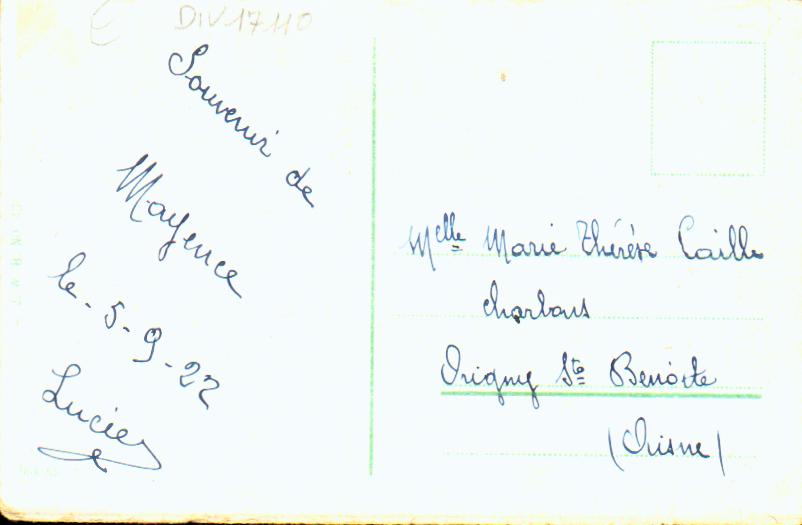 DIV 17 110
Souvenir de
Mayence
le - 5 - 9 - 22
Lucien
Melle Marie Thérèse Caille
charbons
Origny Ste Benoîte
(Aisne)